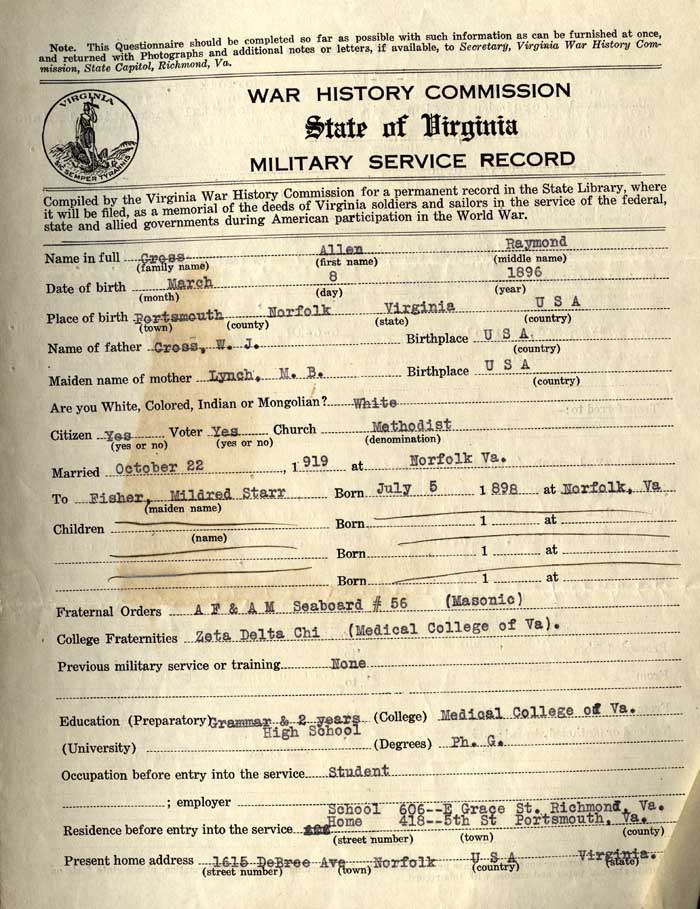 Note. This Questionnaire should be completed so far as possible with such information as can be furnished at once,
and returned with Photographs and additional notes or letters, if available, to Secretary, Virginia War History Com-
mission, State Capitol, Richmond, Va.
VIRGINIA
SIC SEMPER TYRANNIS
WAR HISTORY COMMISSION
State of Virginia
MILITARY SERVICE RECORD
Compiled by the Virginia War History Commission for a permanent record in the State Library, where
it will be filed, as a memorial of the deeds of Virginia soldiers and sailors in the service of the federal,
state and allied governments during American participation in the World War.
Name in full Cross Allen Raymond
(family name) (first name) (middle name)
Date of birth March 8 1896
(month) (day) (year)
Place of birth Portsmouth Norfolk Virginia U S A
(town) (county) (state) (country)
Name of father Cross, W. J. Birthplace U S A
(country)
Maiden name of mother Lynch, M. B. Birthplace U S A
(country)
Are you White, Colored, Indian or Mongolian? White
Citizen Yes Voter Yes Church Methodist
(yes or no) (yes or no) (denomination)
Married October 22, 1919 at Norfolk Va.
To Fisher, Mildred Starr Born July 5 1898 at Norfolk, Va
(maiden name)
Children Born 1 at
(name)
Born 1 at
Born 1 at
Fraternal Orders A F & A M Seaboard # 56 (Masonic)
College Fraternities Zeta Delta Chi (Medical College of Va).
Previous military service or training None
Education (Preparatory) Grammar & 2 years (College) Medical College of Va.
High School
(University) (Degrees) Ph. G.
Occupation before entry into the service Student
; employer
School 606--E Grace St. Richmond, Va.
Residence before entry into the service Home 418--5th St Portsmouth, Va.
(street number) (town) (county)
Present home address 1615 DeBree Ave Norfolk U S A Virginia.
(street number) (town) (country) (state)